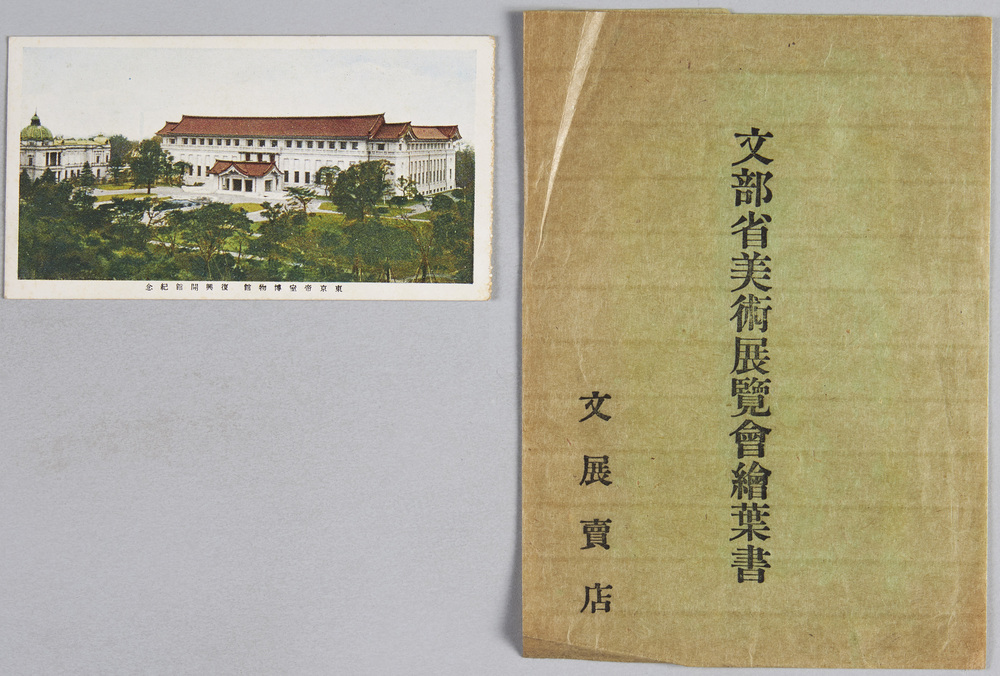 東京帝室博物館 復興開館紀念
文部省美術展覽會繪葉書
文展賣店